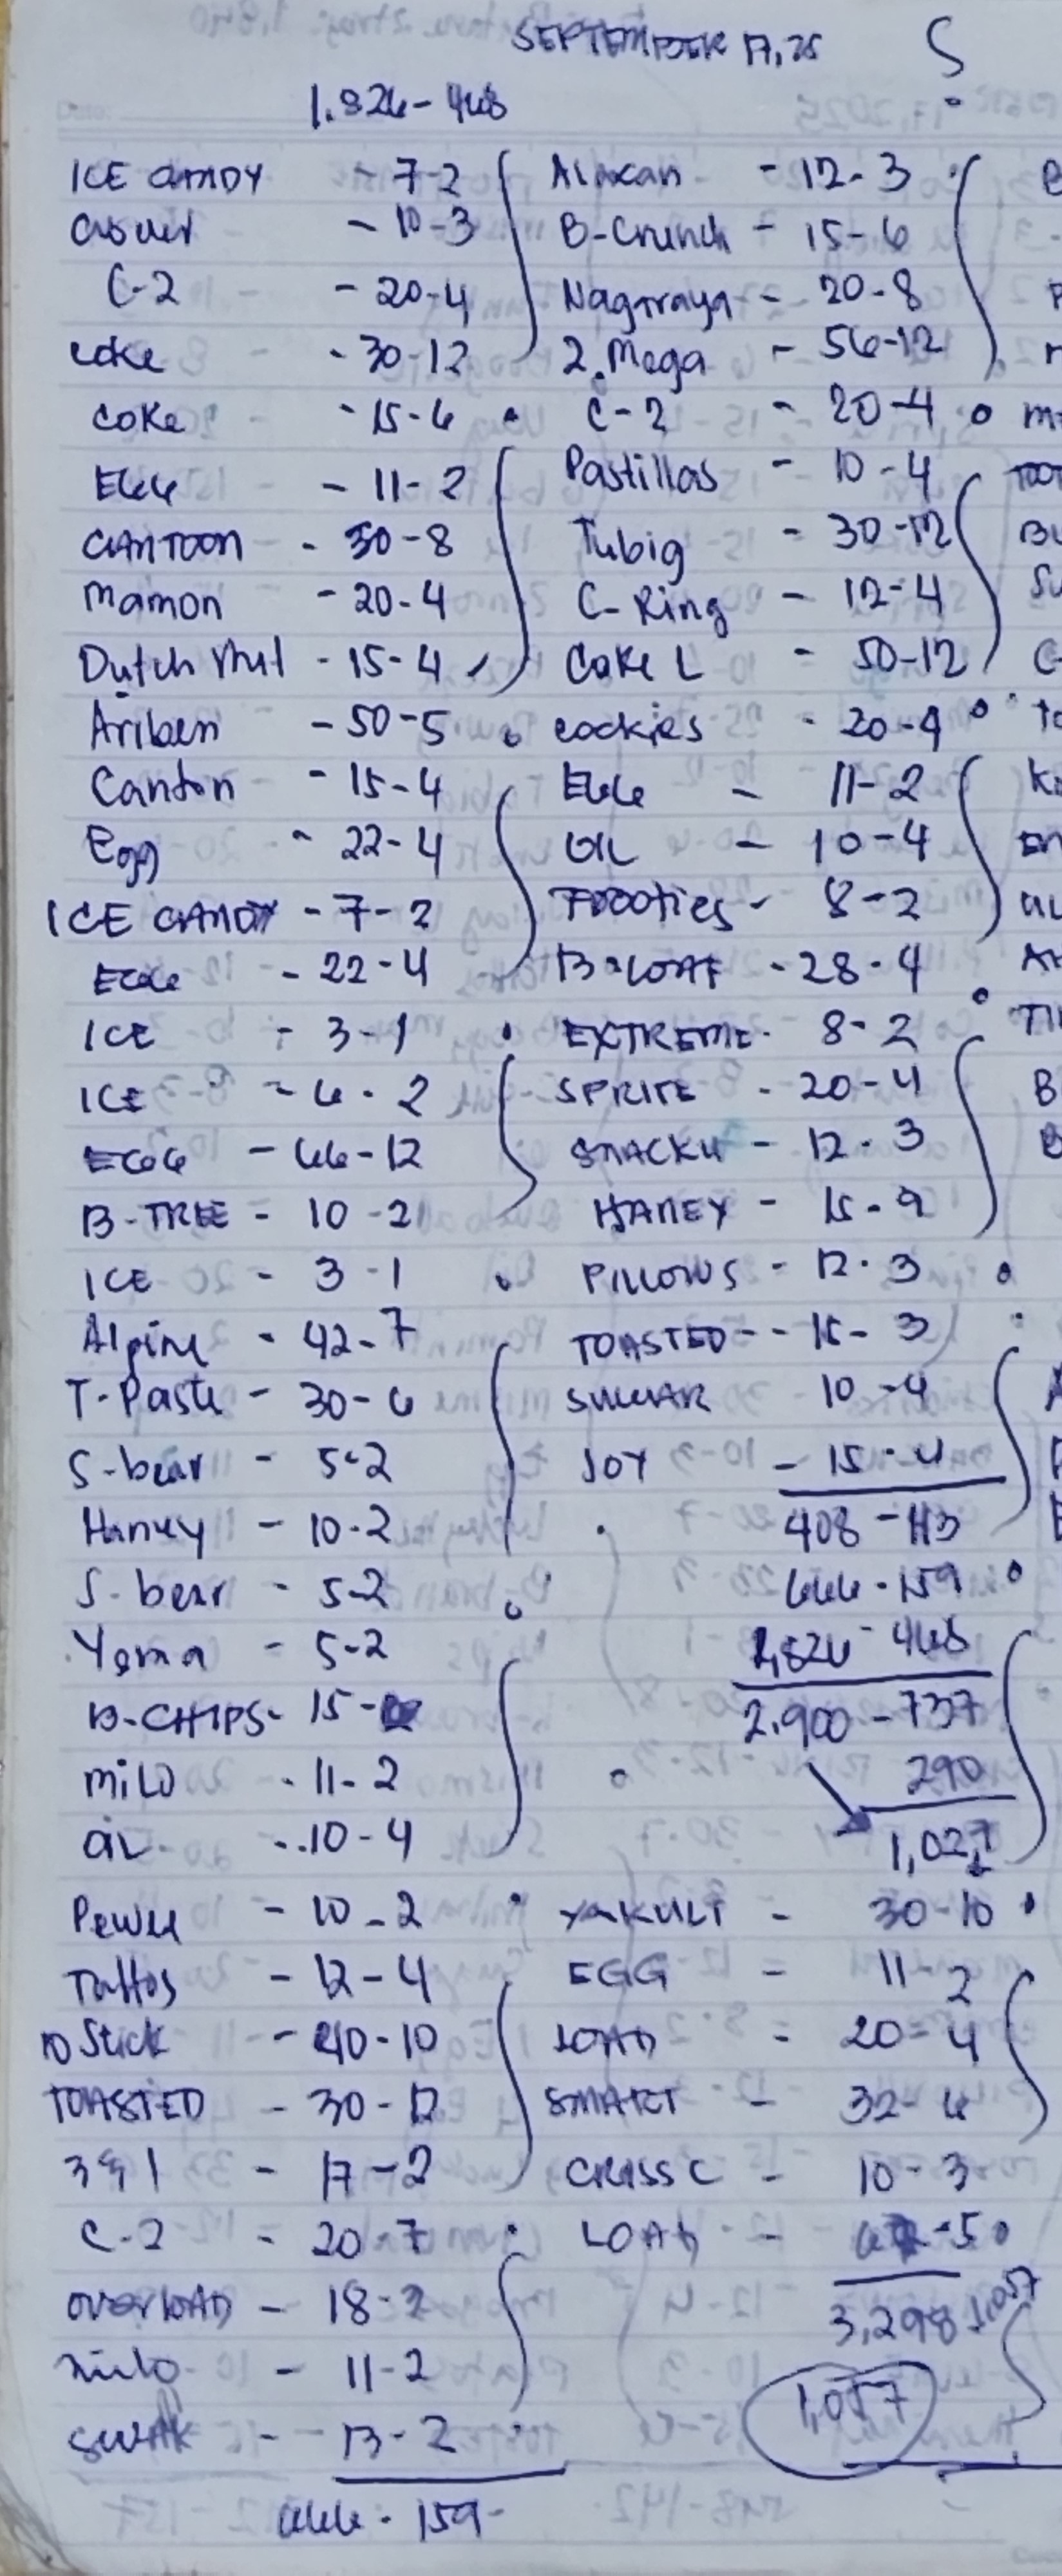 SEPTEMBER 17, 25
1.826-468
ICE CANDY - 7-2
- 10-3
C-2 - 20-4
coke - 30-12
coke - 15-6
EGG - 11-2
CANTOON - 30-8
Mamon - 20-4
Dutch Mil - 15-4
Ariben - 50-5
Canton - 15-4
Egg - 22-4
ICE CANDY - 7-2
EGG - 22-4
ICE - 3-1
ICE - 6-2
EGG - 66-12
B-TREE - 10-2
ICE - 3-1
Alpine - 42-7
T-Paste - 30-6
S-bear - 5-2
Haney - 10-2
S-bear - 5-2
Yema - 5-2
B-CHIPS - 15-
MILO - 11-2
OIL - 10-4
Pewee - 10-2
Tattos - 12-4
10 Stick - 40-10
TOASTED - 30-12
3 & 1 - 17-2
C-2 - 20-7
OVERLOAD - 18-2
Milo - 11-2
SWAK - 13-2
666-159
Alaxan - 12-3
B-Crunch - 15-6
Nagaraya - 20-8
2.Mega - 56-12
C-2 - 20-4
Pastillas - 10-4
Tubig - 30-12
C-Ring - 12-4
Coke L - 50-12
cookies - 20-4
EGG - 11-2
OIL - 10-4
Footies - 8-2
B-LOAF - 28-4
EXTREME - 8-2
SPRITE - 20-4
SNACKU - 12-3
HANEY - 15-9
PILLOWS - 12-3
TOASTED - 15-3
SUGAR 10-4
JOY - 15-4
408-113
666-159
1,826-468
2.900-737
290
1,027
YAKULT - 30-10
EGG - 11-2
LOAD - 20-4
SMART - 32-6
CRISS C - 10-3
LOAD - -5
3,298 1,057
1,057